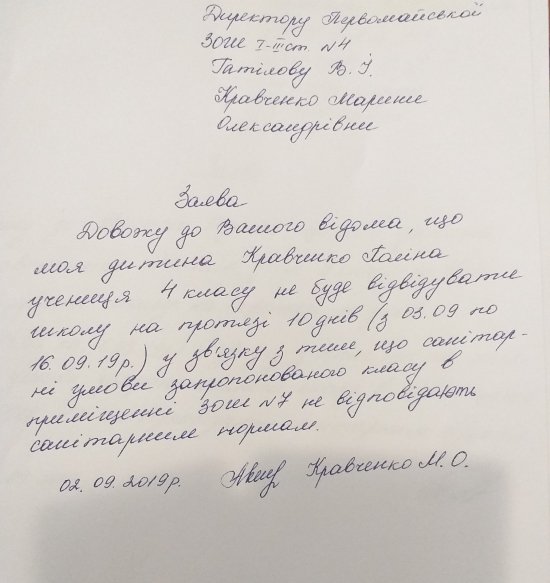 Директору Первомайської
ЗОШ І-ІІ ст. №4
Гатілову В. І.
Кравченко Марини
Олександрівни
Заява
Довожу до Вашого відома, що
моя дитина Кравченко Поліна
учениця 4 класу не буде відвідувати
школу на протязі 10 днів (з 03.09 по
16.09.19р.) у зв'язку з тим, що санітар-
ні умови запропонованого класу в
приміщенні ЗОШ №7 не відповідають
санітарним нормам.
02.09.2019р. Кравченко М.О.